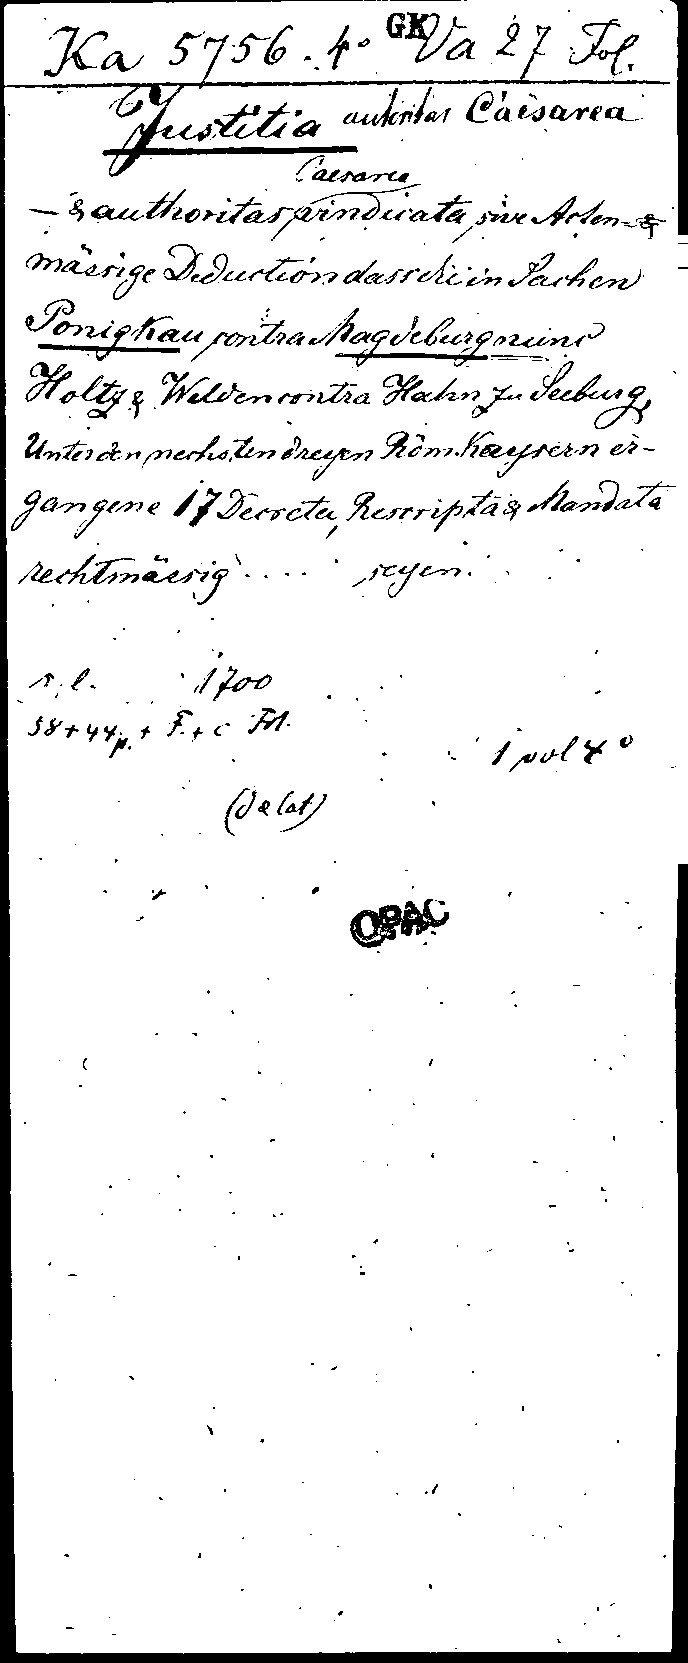 Ka 5756. 4° GK Va 27 Fol.
Justitia autoritas Caesarea
Caesarea
— & authoritas vindicata, sive Acten-
mässige Deduction dass die in Sachen
Ponigkau contra Magdeburg nunc
Holtz & Welden contra Hahn zu Seeburg,
Unter den nechsten dreyen Röm. Kaysern er-
gangene 17 Decreta, Rescripta & Mandata
rechtmässig .... seyen.
s. l. 1700
58+44 p. + F. + C Fol.
1 vol 4°
OPAC